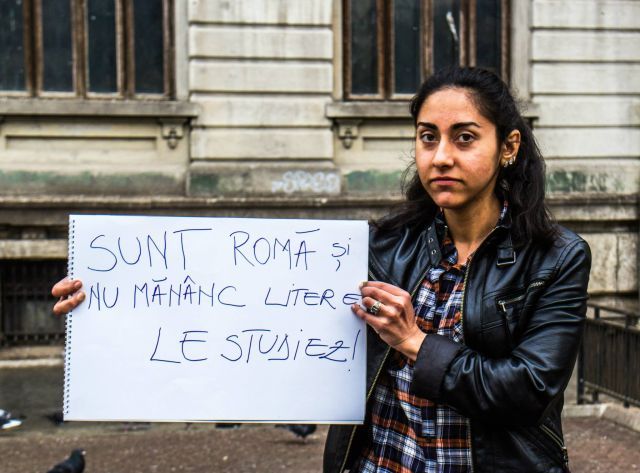 SUNT ROMĂ și
NU MĂNÂNC LITERE
LE STUDIEZ!